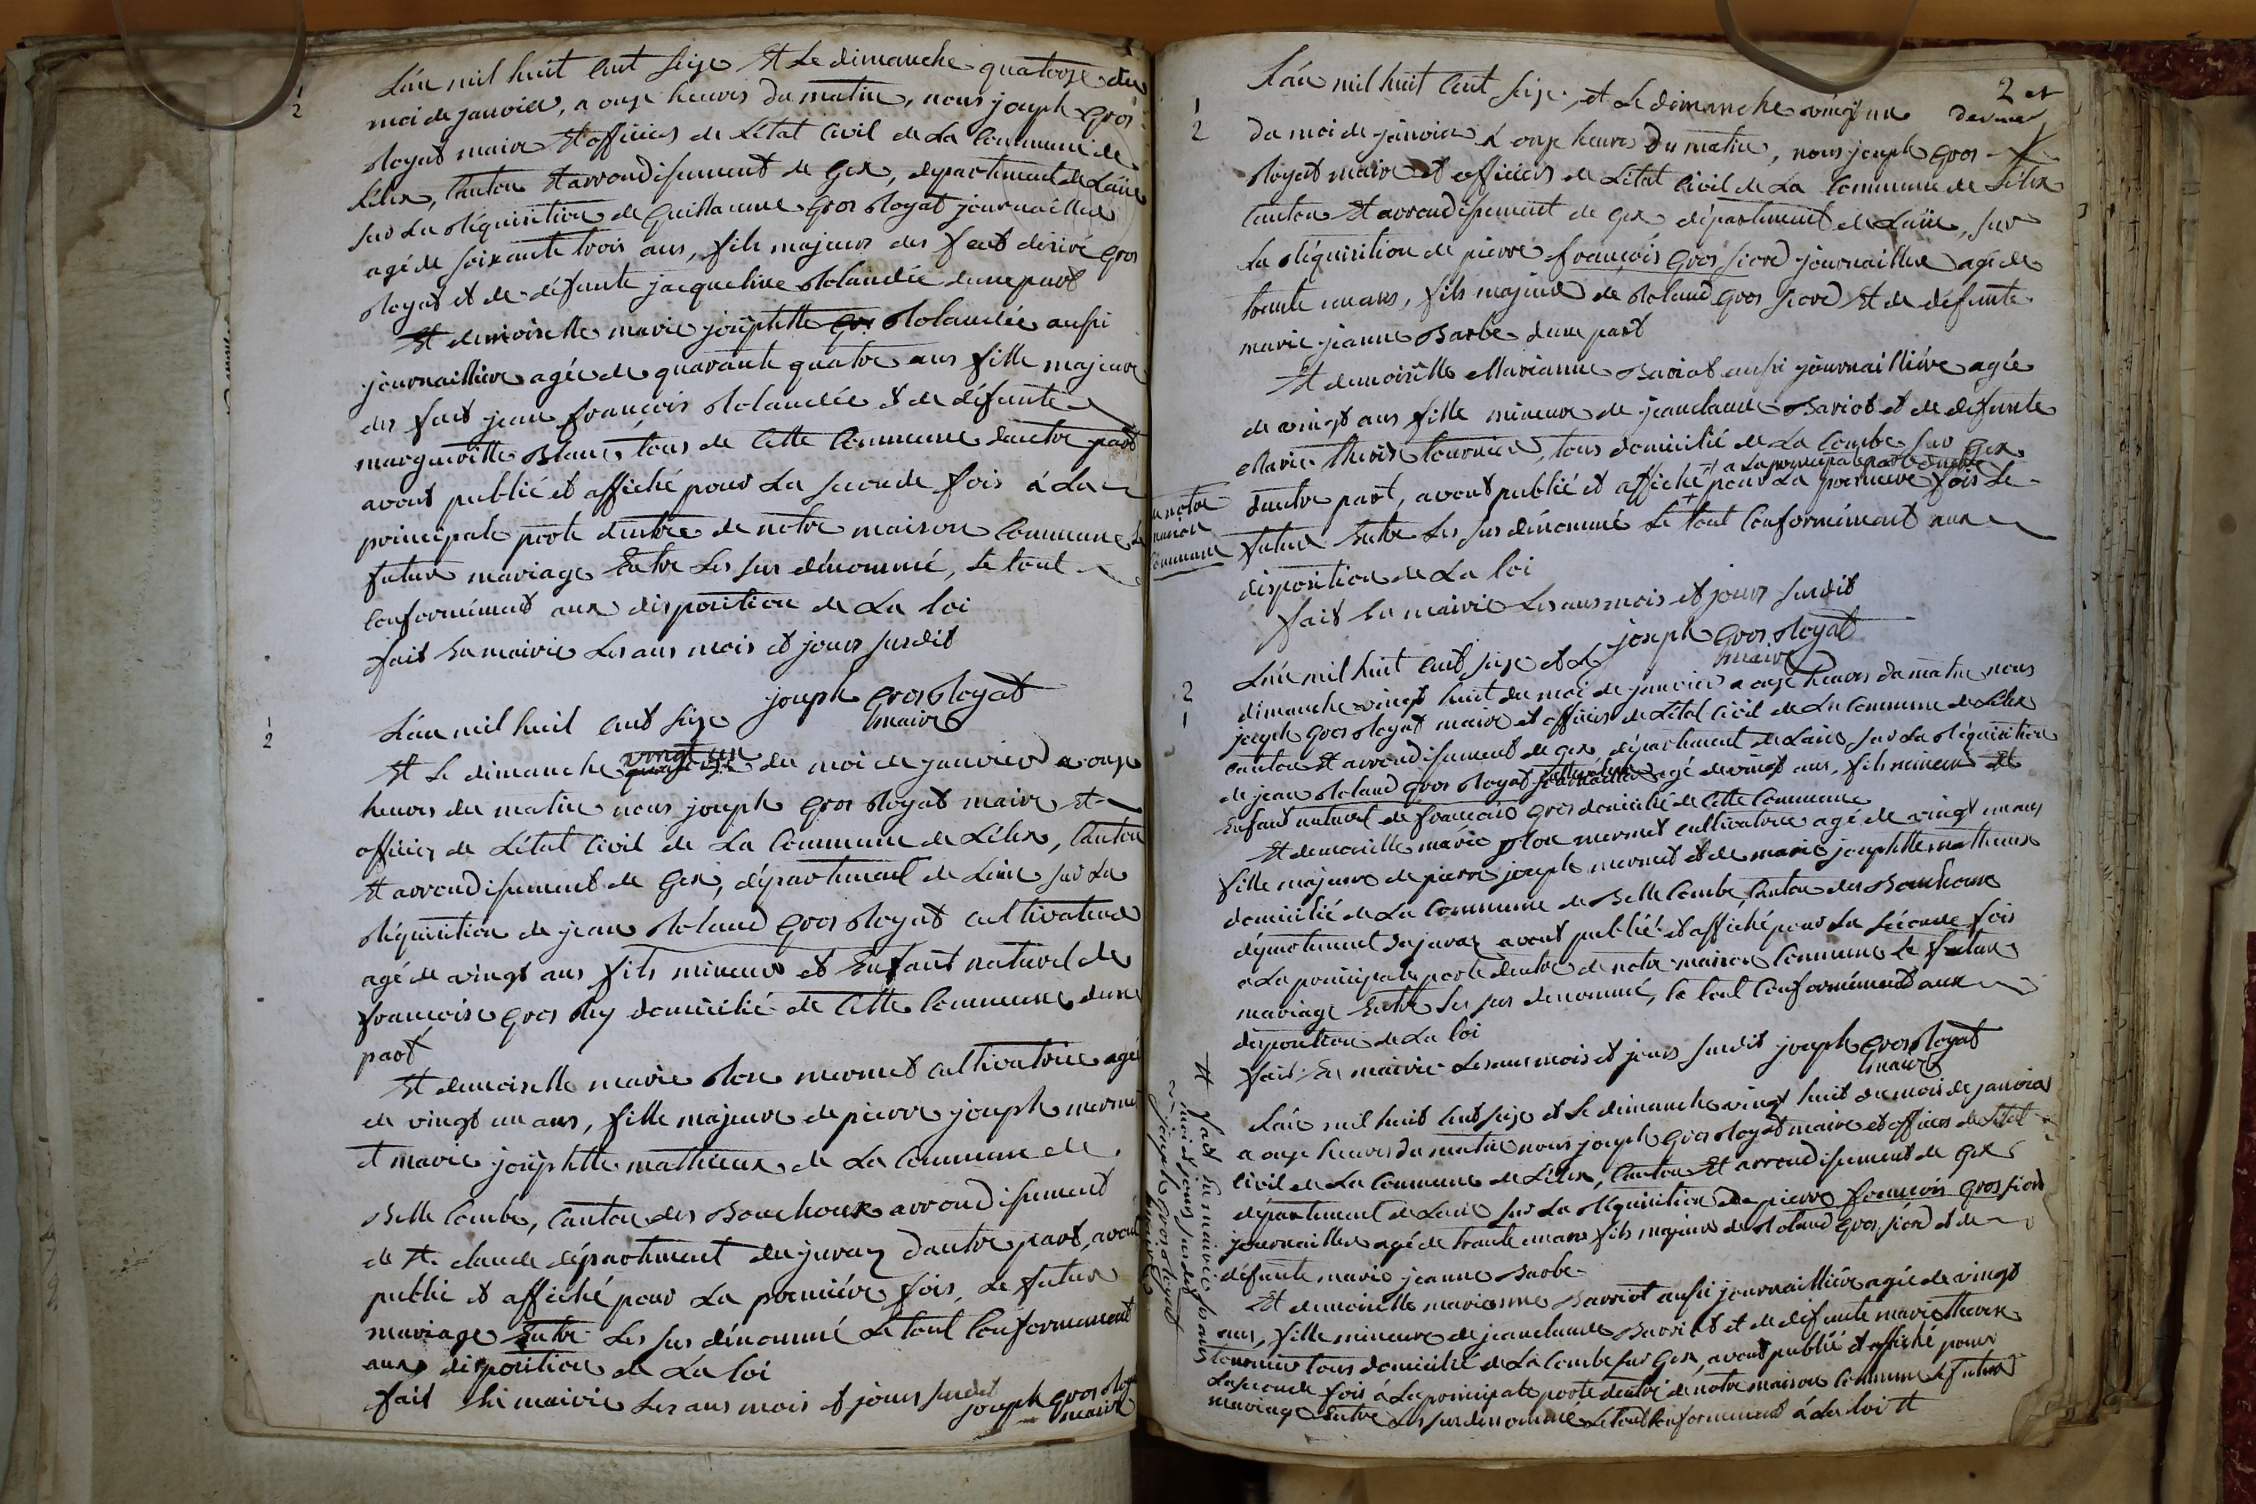 1
2
L'an mil huit cent seize Et Le dimanche quatorze du
moi de janvier, a onze heures du matin, nous joseph gros
Royat maire Et officier de L'etat Civil de La Commune de
Lélex, Canton Et arrondisement de Gex, département de L'ain
sur La Réquisition de Guillaume gros Royat journaillier
agé de soixante trois ans, fils majeur des feut désiré gros
Royat et de défunte jacqueline Rolandée dune part
Et demoiselle marie josephtte Rolandée aussi
journaillière agée de quarante quatre ans fille majeure
des feut jean françois Rolandée Et de défunte
margueritte Blanc, tous de Cette Commune dautre part
avont publié et affiché pour La seconde fois à La
principale porte dentrée de notre maison Commune Le
futur mariage Entre Les sus dénommé, Le tout
conformément aux disposition de La loi
fait En mairie Les ans mois et jours susdit
joseph gros Royat
maire
1
2
L'an mil huit cent seize
Et Le dimanche vingt un du moi de janvier a onze
heures du matin nous joseph gros Royat maire Et
officier de L'état Civil de La Commune de Lélex, Canton
Et arrondisement de Gex, département de Lain sur La
Réquisition de jean Roland gros Royat cultivateur
agé de vingt ans fils mineur et Enfant naturel de
françoise gros domicilié de Cette Commune dune
part
Et demoiselle marie Rose mermet cultivatrice agée
de vingt un ans, fille majeure de pierre joseph mermet
Et marie josephtte mathieux de La Commune de
Belle Combe, Canton des Bouchoux arrondisement
de St. claude département du jura dautre part, avont
publié et affiché pour La première fois, Le futur
mariage Entre Les sus dénommé Le tout Conformement
aux disposition de La loi
fait En mairie Les ans mois et jours susdit
joseph gros Royat
maire
2 et
dernier
1
2
L'an mil huit Cent seize, et Le dimanche vingt un
du moi de janvier à onze heures Du matin, nous joseph gros
Royat maire Et officier de L'état Civil de La Commune de Lélex
Canton Et arrondisement de Gex département de L'ain, sur
La Réquisition de pierre françois gros fiord journaillier agé de
trente un ans, fils majeur de Roland gros fiord Et de défunte
marie jeanne Barbe dune part
Et demoiselle Marianne Bariot aussi journaillière agée
de vingt ans fille mineure de jeanclaude Bariot et de défunte
Marie therèse tournier, tous domicilié de La Combe sur Gex
a La principale porte dentrée
dautre part, avont publié et affiché pour La première fois Le
de notre
maison
Commune
futur Entre Les sus dénommé Le tout Conformément aux
disposition de La loi
fait En mairie Les ans mois et jours susdit
joseph gros Royat
maire
2
1
L'an mil huit cent seize et Le
dimanche vingt huit du moi de janvier a onze heures du matin nous
joseph gros Royat maire et officier de L'état Civil de La Commune de Lélex
canton Et arrondisement de Gex département de Lain sur La Réquisition
de jean Roland gros Royat agé de vingt ans, fils mineur Et
Enfant naturel de gros domicilié de Cette Commune
Et demoiselle marie Rose mermet cultivatrice agé de vingt un ans
fille majeure de pierre joseph mermet et de marie josephtte mathieux
domicilié de La Commune de Belle Combe Canton des Bouchoux
département du jura avont publié et affiché pour La seconde fois
a La principale porte dentre de notre maison Commune Le futur
mariage Entre Les sus dénommé, Le tout Conformément aux
disposition de La loi
fait En mairie Les ans mois et jours susdit joseph gros Royat
maire
L'an mil huit Cent seize et Le dimanche vingt huit du mois de janvier
a onze heures du matin nous joseph gros Royat maire et officier de L'état
Civil de La Commune de Lélex, Canton Et arrondisement de Gex
département de Lain sur La Réquisition De pierre françois gros fiord
journaillier agé de trente un ans fils majeur de Roland gros fiord et de
défunte marie jeanne Barbe
Et demoiselle marianne Barriot aussi journaillière agée de vingt
ans, fille mineure de jeanclaude Barriot et de défunte marie therese
tournier tous domicilié de La Combe sur Gex, avont publié et affiché pour
La seconde fois à La principale porte dentré de notre maison Commune Le futur
mariage Entre Les sus dénommé Le tout Conformément à La loi #
# fait En mairie Les ans
mois et jours susdit
joseph gros Royat
maire